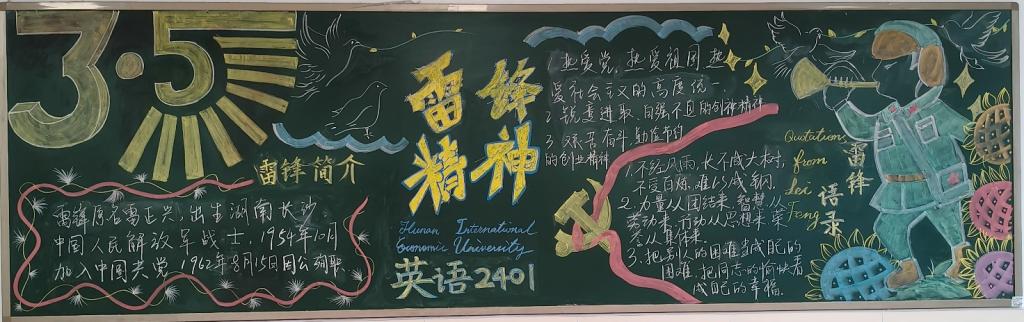 3·5
雷锋简介
雷锋原名雷正兴,出生湖南长沙,
中国人民解放军战士,1954年10月
加入中国共党 1962年8月15日因公殉职
雷锋
精神
Hunan International
Economic University
英语2401
1. 热爱党,热爱祖国,热
爱社会主义的高度统一
2. 锐意进取、自强不息的创新精神
3. 艰苦奋斗,勤俭节约
的创业精神
1. 不经风雨,长不成大树,
不受百炼,难以成钢.
2. 力量从团结来,智慧从
劳动来,行动从思想来,荣
誉从集体来.
3. 把别人的困难当成自己的
困难,把同志的愉快看
成自己的幸福.
Quotations
from
Lei
Feng
雷锋
语录